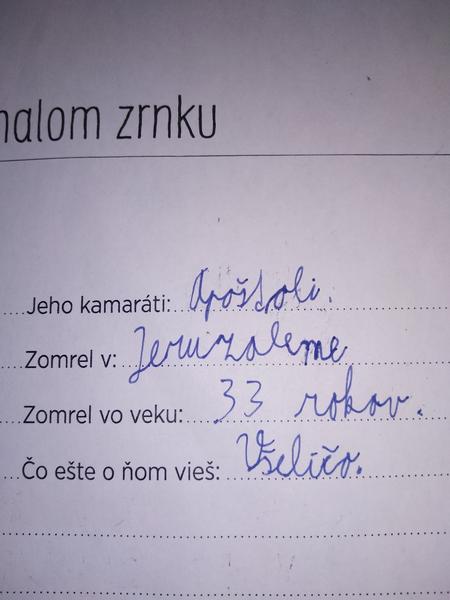 malom zrnku
....Jeho kamaráti: Apoštoli.
....Zomrel v: Jeruzaleme
...Zomrel vo veku: 33 rokov.
...Čo ešte o ňom vieš: Všeličo.